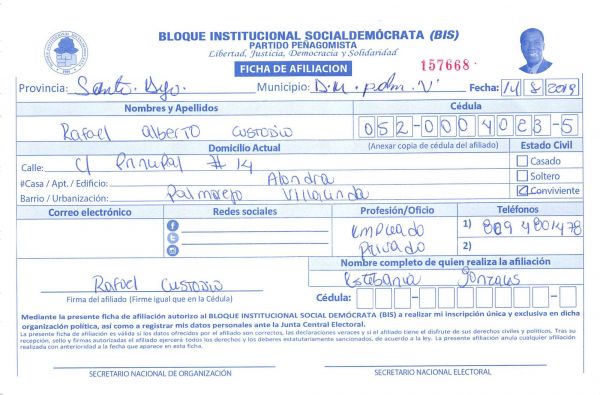 BLOQUE INSTITUCIONAL SOCIALDEMÓCRATA (BIS)
PARTIDO PEÑAGOMISTA
Libertad, Justicia, Democracia y Solidaridad
FICHA DE AFILIACION
157668
Provincia: Santo. Dgo. Municipio: D.N. Fecha: 14/8/2019
Nombres y Apellidos
Cédula
Rafael alberto custodio
052-0004023-5
Domicilio Actual
(Anexar copia de cédula del afiliado)
Estado Civil
Calle: C/ Principal # 14
Casado
#Casa / Apt. / Edificio: Alondra
Soltero
Barrio / Urbanización: Palmarejo Villalinda
Conviviente
Correo electrónico
Redes sociales
Profesión/Oficio
Teléfonos
empleado
1) 809 4801478
Privado
2)
Nombre completo de quien realiza la afiliación
Rafael custodio
Estebania
Firma del afiliado (Firme igual que en la Cédula)
Cédula:
Mediante la presente ficha de afiliación autorizo al BLOQUE INSTITUCIONAL SOCIAL DEMÓCRATA (BIS) a realizar mi inscripción única y exclusiva en dicha
organización política, así como a registrar mis datos personales ante la Junta Central Electoral.
La presente ficha de afiliación es válida si los datos ofrecidos por el afiliado son correctos, las declaraciones veraces y si el afiliado tiene el disfrute de sus derechos civiles y políticos. Tras su
recepción, sello y firmas autorizadas el afiliado ejercerá todos los derechos y los deberes estatutariamente sancionados, de acuerdo a la ley. La presente afiliación anula cualquier afiliación
realizada con anterioridad a la fecha que aparece en esta ficha.
SECRETARIO NACIONAL DE ORGANIZACIÓN
SECRETARIO NACIONAL ELECTORAL